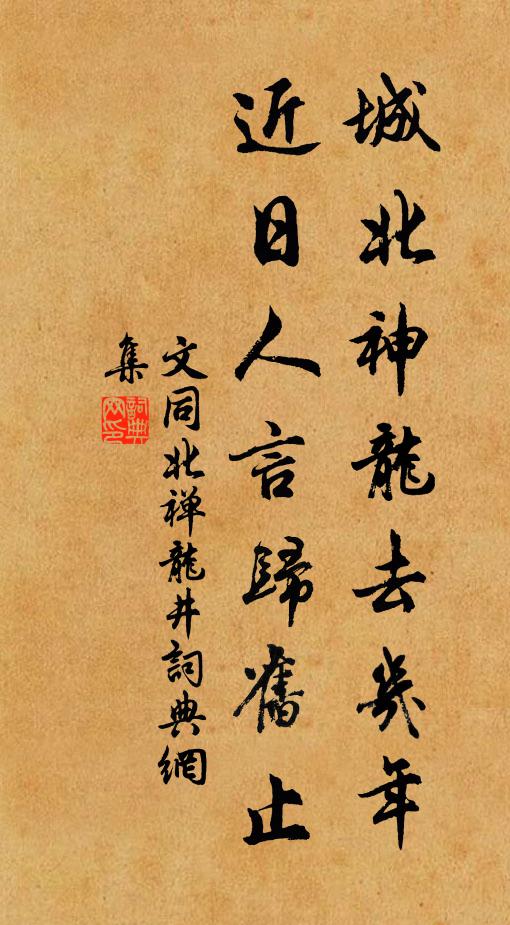 城北神龍去幾年
近日人言歸舊止
文同北禅龍井詞典網
集
詞典网印